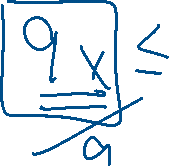 9x ≤
9